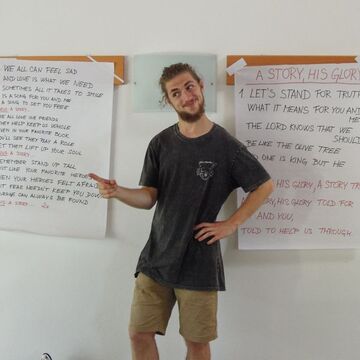 WE ALL CAN FEEL SAD
AND LOVE IS WHAT WE NEED
SOMETIMES ALL IT TAKES TO SMILE
IS A SONG FOR YOU AND ME
A SONG TO SET YOU FREE
A STORY
WE ALL LOVE OUR FRIENDS
THEY HELP KEEP US WHOLE
EVEN IN YOUR FAVORITE BOOK
YOU'LL SEE THEY PLAY A ROLE
LET THEM LIFT UP YOUR SOUL
A STORY
REMEMBER STAND UP TALL
JUST LIKE YOUR FAVORITE HEROES
WHEN YOUR HEROES FELT AFRAID
FEAR NEEDN'T KEEP YOU DOWN
CAN ALWAYS BE FOUND
A STORY... 2x
A STORY, HIS GLORY
1. LET'S STAND FOR TRUTH
WHAT IT MEANS FOR YOU AND
ME
THE LORD KNOWS THAT WE
SHOULD
BE LIKE THE OLIVE TREE
NO ONE IS KING BUT HE
HIS GLORY, A STORY
HIS GLORY TOLD FOR
AND YOU,
TOLD TO HELP US THROUGH